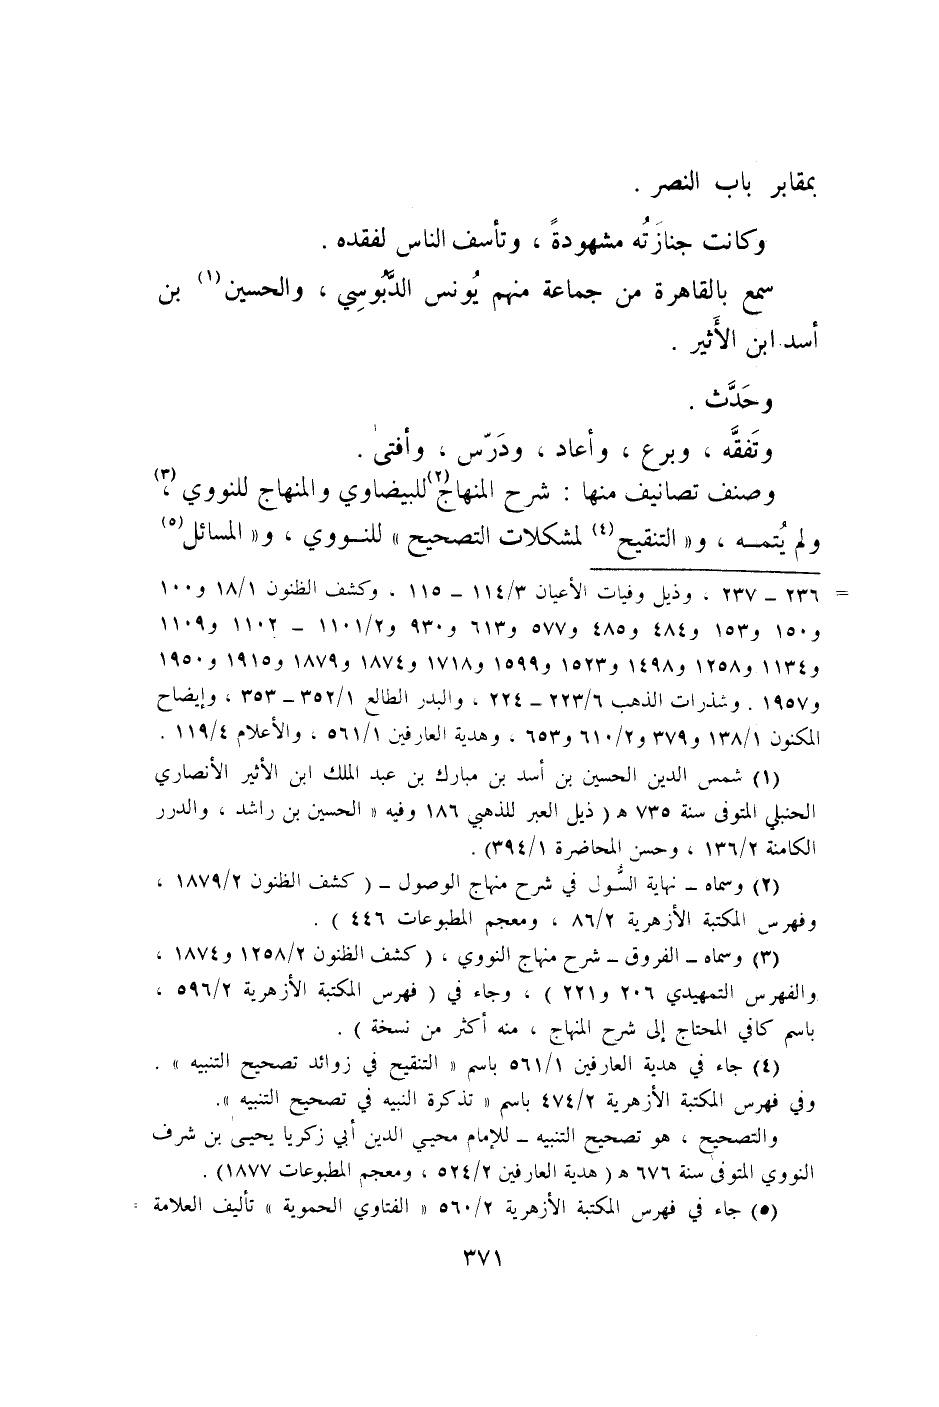 بمقابر باب النصر .
وكانت جنازَتُه مشهودةً ، وتأسف الناس لفقده .
سمع بالقاهرة من جماعة منهم يُونس الدَّبُّوسِي ، والحسين(١) بن
أسد ابن الأَثير .
وحَدَّث .
وتَفقَّه ، وبرع ، وأعاد ، ودَرّس ، وأفتىٰ .
وصنف تصانيف منها : شرح المنهاج(٢) للبيضاوي والمنهاج للنووي(٣) ،
ولم يُتمـــه ، و« التنقيح(٤) لمشكلات التصحيح » للنــووي ، و« المسائل(٥)
= ٢٣٦ ــ ٢٣٧ ، وذيل وفيات الأعيان ١١٤/٣ ــ ١١٥ ، وكشف الظنون ١٨/١ و١٠٠
و١٥٠ و١٥٣ و٤٨٤ و٤٨٥ و٥٧٧ و٦١٣ و٩٣٠ و١١٠١/٢ ــ ١١٠٢ و١١٠٩
و١١٣٤ و١٢٥٨ و١٤٩٨ و١٥٢٣ و١٥٩٩ و١٧١٨ و١٨٧٤ و١٨٧٩ و١٩١٥ و١٩٥٠
و١٩٥٧ . وشذرات الذهب ٢٢٣/٦ ــ ٢٢٤ ، والبدر الطالع ٣٥٢/١ ــ ٣٥٣ ، وإيضاح
المكنون ١٣٨/١ و٣٧٩ و٦١٠/٢ و٦٥٣ ، وهدية العارفين ٥٦١/١ ، والأعلام ١١٩/٤ .
(١) شمس الدين الحسين بن أسد بن مبارك بن عبد الملك ابن الأثير الأنصاري
الحنبلي المتوفى سنة ٧٣٥ ه ( ذيل العبر للذهبي ١٨٦ وفيه « الحسين بن راشد ، والدرر
الكامنة ١٣٦/٢ ، وحسن المحاضرة ٣٩٤/١) .
(٢) وسماه ــ نهاية السُّول في شرح منهاج الوصول ــ ( كشف الظنون ١٨٧٩/٢ ،
وفهرس المكتبة الأزهرية ٨٦/٢ ، ومعجم المطبوعات ٤٤٦ ) .
(٣) وسماه ــ الفروق ــ شرح منهاج النووي ، ( كشف الظنون ١٢٥٨/٢ و١٨٧٤ ،
والفهرس التمهيدي ٢٠٦ و٢٢١ ) ، وجاء في ( فهرس المكتبة الأزهرية ٥٩٦/٢ ،
باسم كافي المحتاج إلى شرح المنهاج ، منه أكثر من نسخة ) .
(٤) جاء في هدية العارفين ٥٦١/١ باسم « التنقيح في زوائد تصحيح التنبيه » .
وفي فهرس المكتبة الأزهرية ٤٧٤/٢ باسم « تذكرة النبيه في تصحيح التنبيه ».
والتصحيح ، هو تصحيح التنبيه ــ للإمام محيي الدين أبي زكريا يحيىٰ بن شرف
النووي المتوفى سنة ٦٧٦ ه ( هدية العارفين ٥٢٤/٢ ، ومعجم المطبوعات ١٨٧٧) .
(٥) جاء في فهرس المكتبة الأزهرية ٥٦٠/٢ « الفتاوي الحموية » تأليف العلامة =
٣٧١